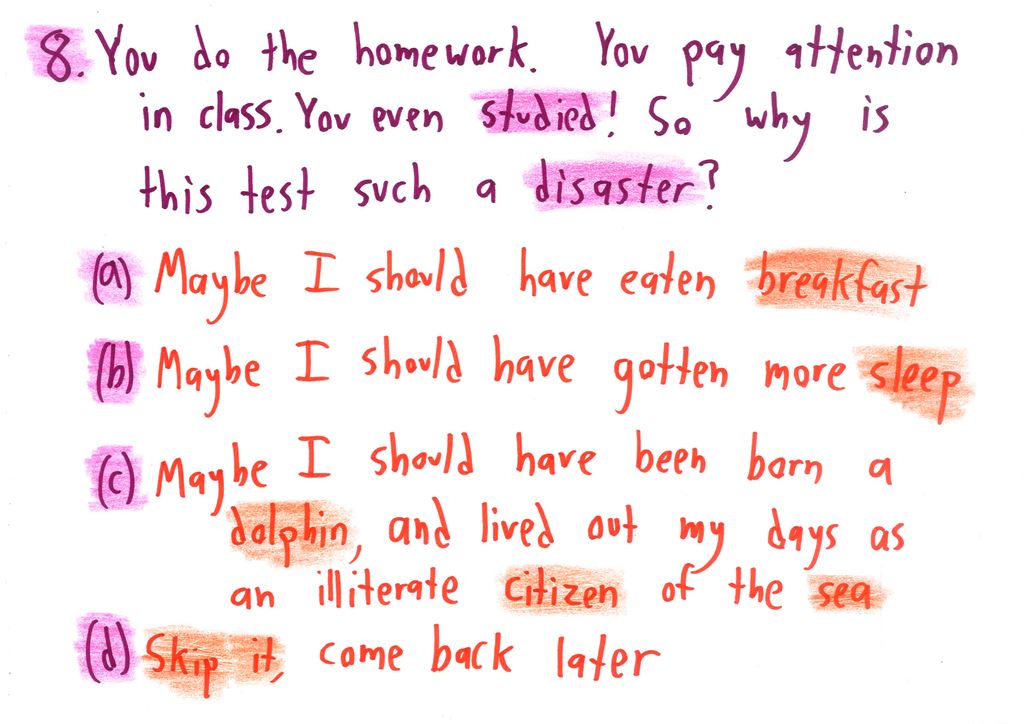 8. You do the homework. You pay attention
in class. You even studied! So why is
this test such a disaster?
(a) Maybe I should have eaten breakfast
(b) Maybe I should have gotten more sleep
(c) Maybe I should have been born a
dolphin, and lived out my days as
an illiterate citizen of the sea
(d) Skip it, come back later